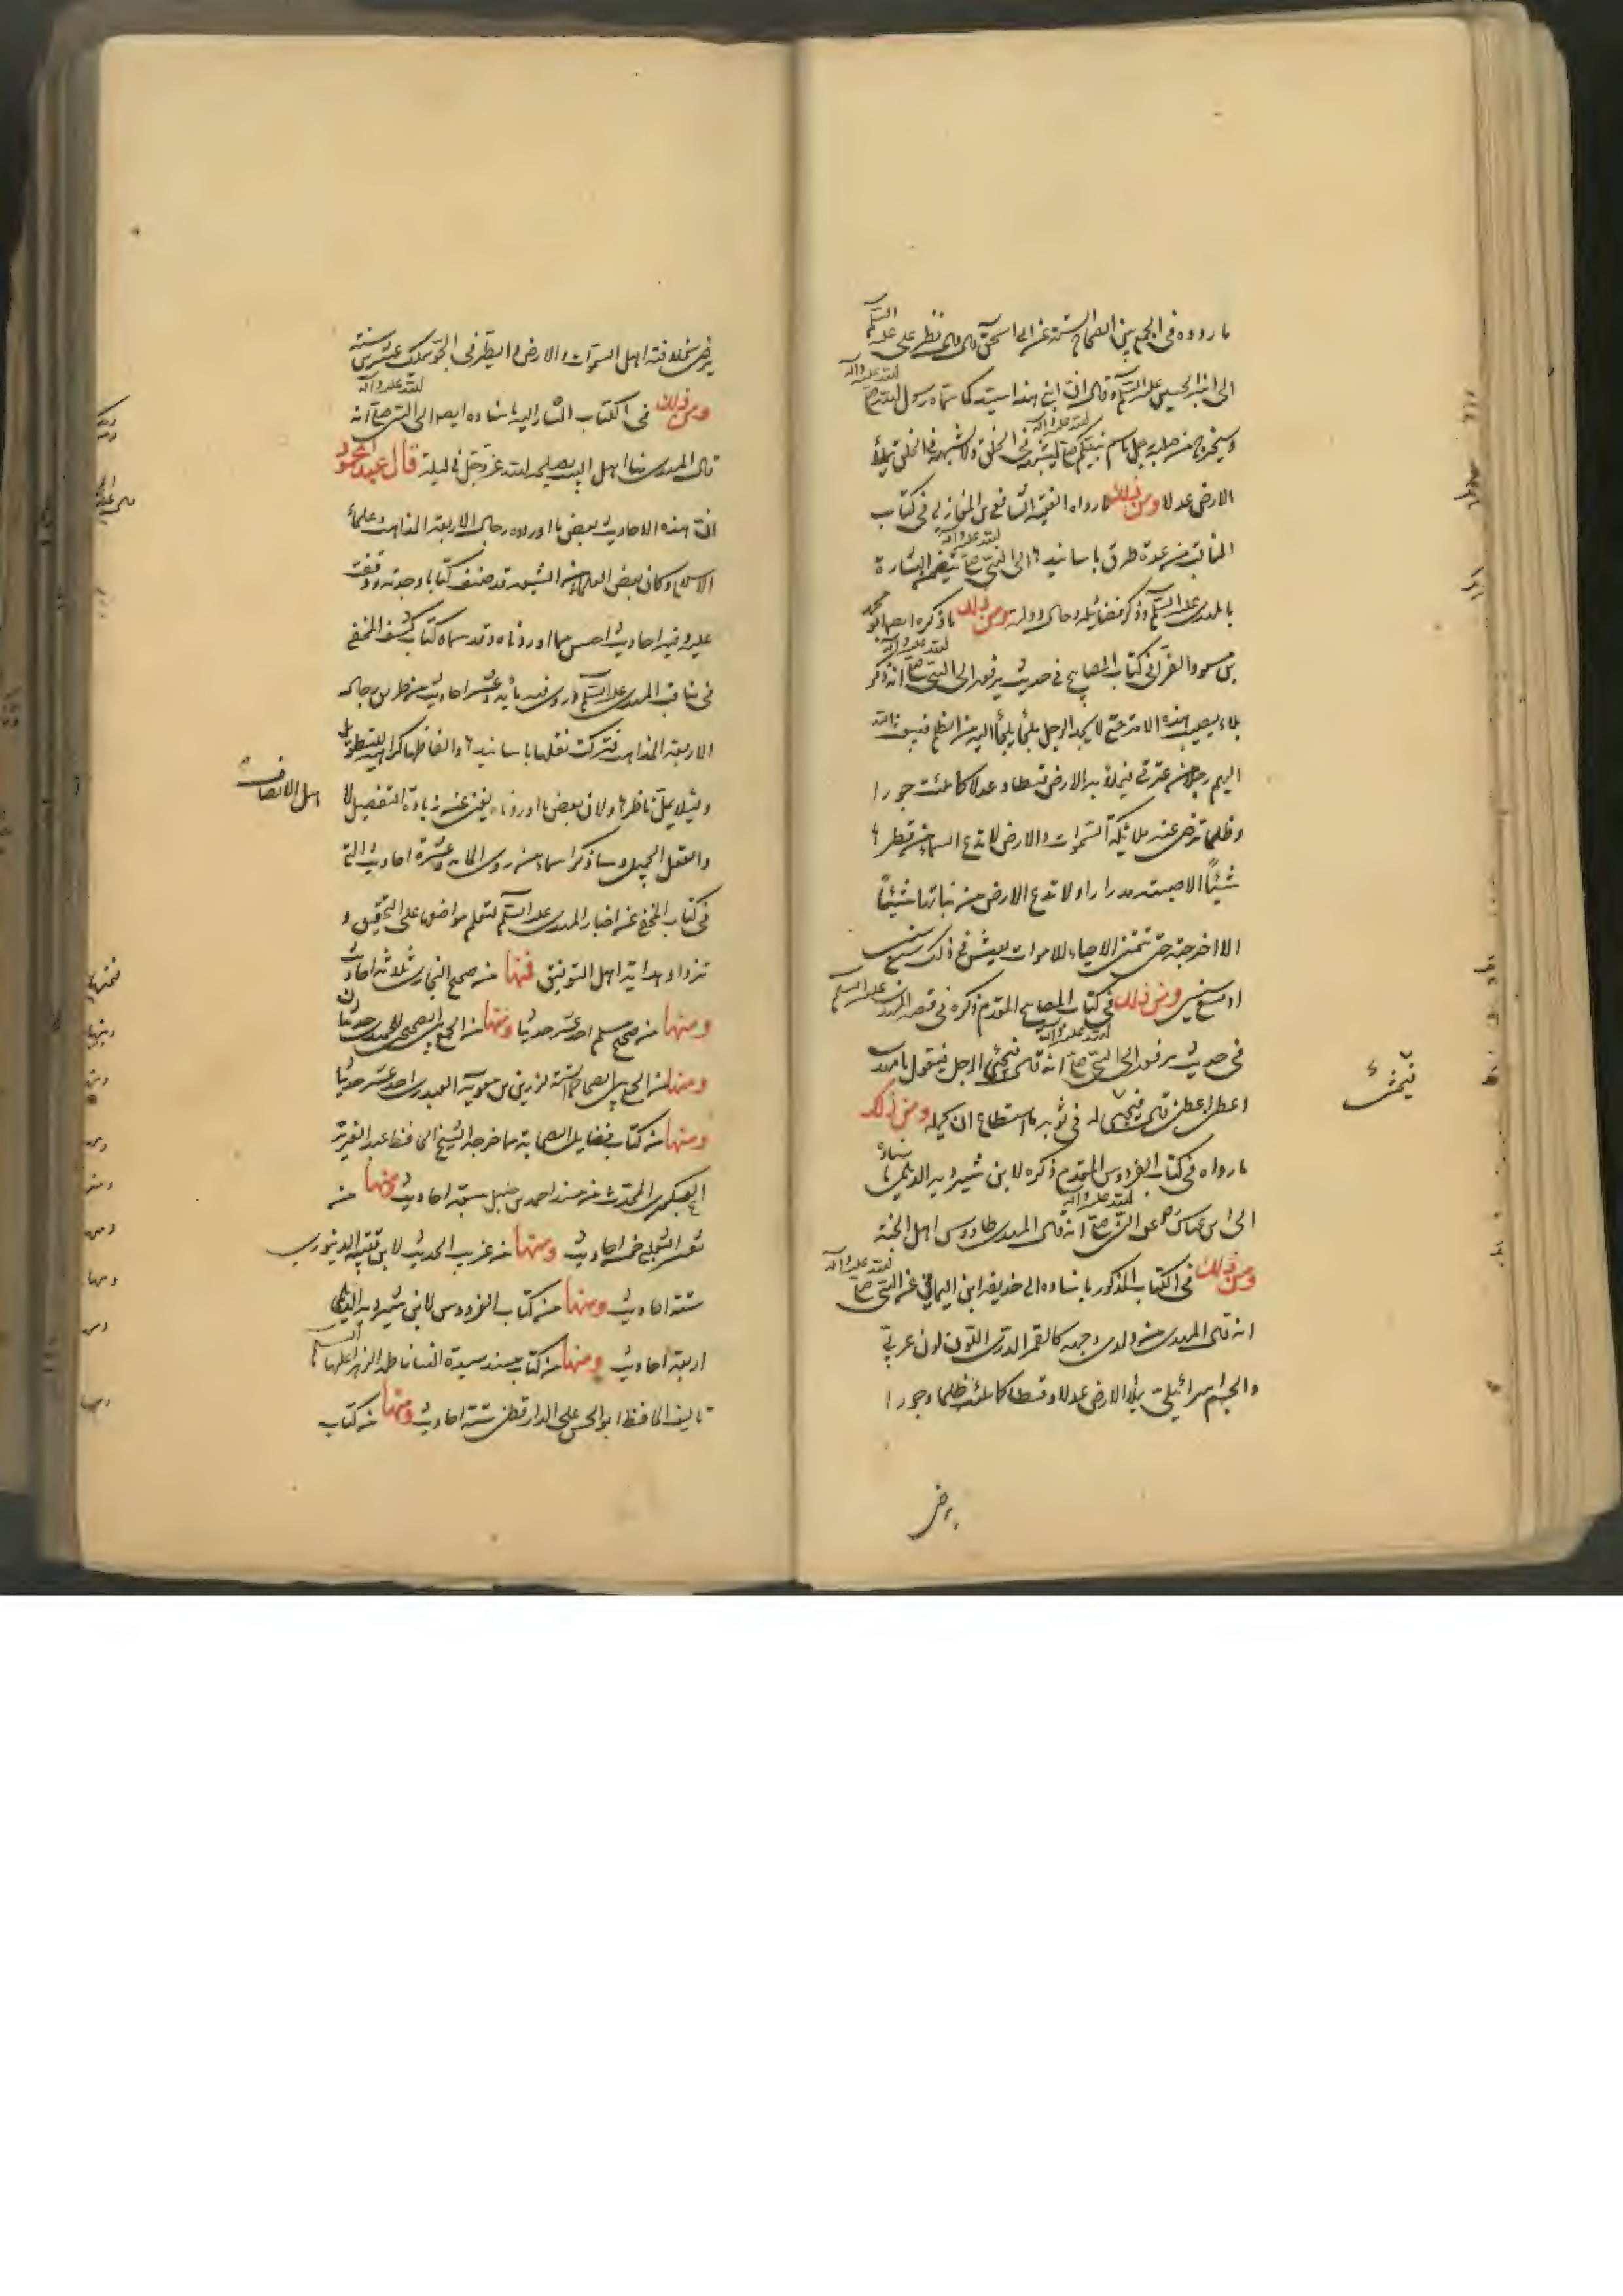 ما رووه في الجمع بين الصحاح الستة عن ابي اسحق قال قال نظر علي عليه السلم
الى ابنه الحسين عليه السلم وقال ان ابني هذا سيد كما سماه رسول الله صلى الله عليه وآله
وسيخرج من صلبه رجل باسم نبيكم صلى الله عليه وآله يشبهه في الخلق ولا يشبهه في الخلق يملأ
الارض عدلا ومن ذلك ما رواه الفقيه الشافعي بن المغازلي في كتاب
المناقب من عدة طرق باسانيدها الى النبي صلى الله عليه وآله يتضمن البشارة
بالمهدي عليه السلم وذكر فضائله وحال دولته ومن ذلك ما ذكره ايضا ابو محمد
بن مسعود الفرا في كتاب المصابيح في حديث يرفعه الى النبي صلى الله عليه وآله انه ذكر
بلاء يصيب هذه الامة حتى لا يجد الرجل ملجأ يلجأ اليه من الظلم فيبعث الله
اليهم رجلا من عترتي فيملأ به الارض قسطا وعدلا كما ملئت جورا
وظلما ترضى عنه ملائكة السموات والارض لا تدع السماء من قطرها
شيئاً الا صبته مدرارا ولا تدع الارض من نباتها شيئاً
الا اخرجته حتى تتمنى الاحياء للاموات يعيش في ذلك سبع سنين
او تسع سنين ومن ذلك في كتاب المصابيح المتقدم ذكره في قصة المهدي عليه السلم
في حديث يرفعه الى النبي صلى الله عليه وآله انه قال فيجئ الرجل فيقول يا مهدي
اعطني اعطني قال فيحثي له في ثوبه ما استطاع ان يحمله ومن ذلك
ما رواه في كتاب الفردوس المتقدم ذكره لابن شيرويه الديلمي باسناده
الى ابن عباس عن النبي صلى الله عليه وآله انه قال المهدي طاووس اهل الجنة
ومن ذلك في الكتاب المذكور باسناده الى حذيفة ابن اليماني عن النبي صلى الله عليه وآله
انه قال المهدي من ولدي وجهه كالقمر الدري اللون لون عربي
والجسم اسرائيلي يملأ الارض عدلا وقسطا كما ملئت ظلما وجورا
يرضى
يرضى بخلافته اهل السموات والارض والطير في الجو يملك عشرين سنة
ومن ذلك في الكتاب المشار اليه باسناده ايضا الى النبي صلى الله عليه وآله انه
قال المهدي منا اهل البيت يصلحه الله عز وجل في ليلة قال عبد المحمود
ان هذه الاحاديث بعض ما اورده رجال الاربعة المذاهب وعلماء
الاسلام وكان بعض العلماء من الشيعة قد صنف كتابا وجدته ووقفت
عليه وفيه احاديث احسن مما اوردناه وقد سماه كتاب كشف المخفي
في مناقب المهدي عليه السلم وروى فيه مأية وعشر احاديث من طريق رجال
الاربعة المذاهب فتركت نقلها باسانيدها والفاظها كراهية للتطويل
ولئلا يمل ناظرها ولان بعض ما اوردناه يغني عن زيادة التفصيل لا
اهل الانصاف
والعقل الجميل وساذكر اسماء من روى الماية وعشرة احاديث التي
في كتاب المخفي عن اخبار المهدي عليه السلم لتعلم مواضعها على التحقيق و
تزداد هداية اهل التوفيق فمنها من صحيح البخاري ثلثة احاديث
ومنها من صحيح مسلم احد عشر حديثا ومنها من الجمع بين الصحيحين للحميدي حديثان
ومنها من الجمع بين الصحاح الستة لزرين بن معوية العبدري احد عشر حديثا
ومنها من كتاب فضايل الصحابة مما خرجه الشيخ الحافظ عبد العزيز
العكبري المحدث من مسند احمد بن حنبل سبعة احاديث ومنها من
تفسير الثعلبي خمسة احاديث ومنها من غريب الحديث لابن قتيبة الدينوري
ستة احاديث ومنها من كتاب الفردوس لابن شيرويه الديلمي
اربعة احاديث ومنها من كتاب مسند سيدة النساء فاطمة الزهراء عليها السلم
تاليف الحافظ ابو الحسن علي الدارقطني ستة احاديث ومنها من كتاب